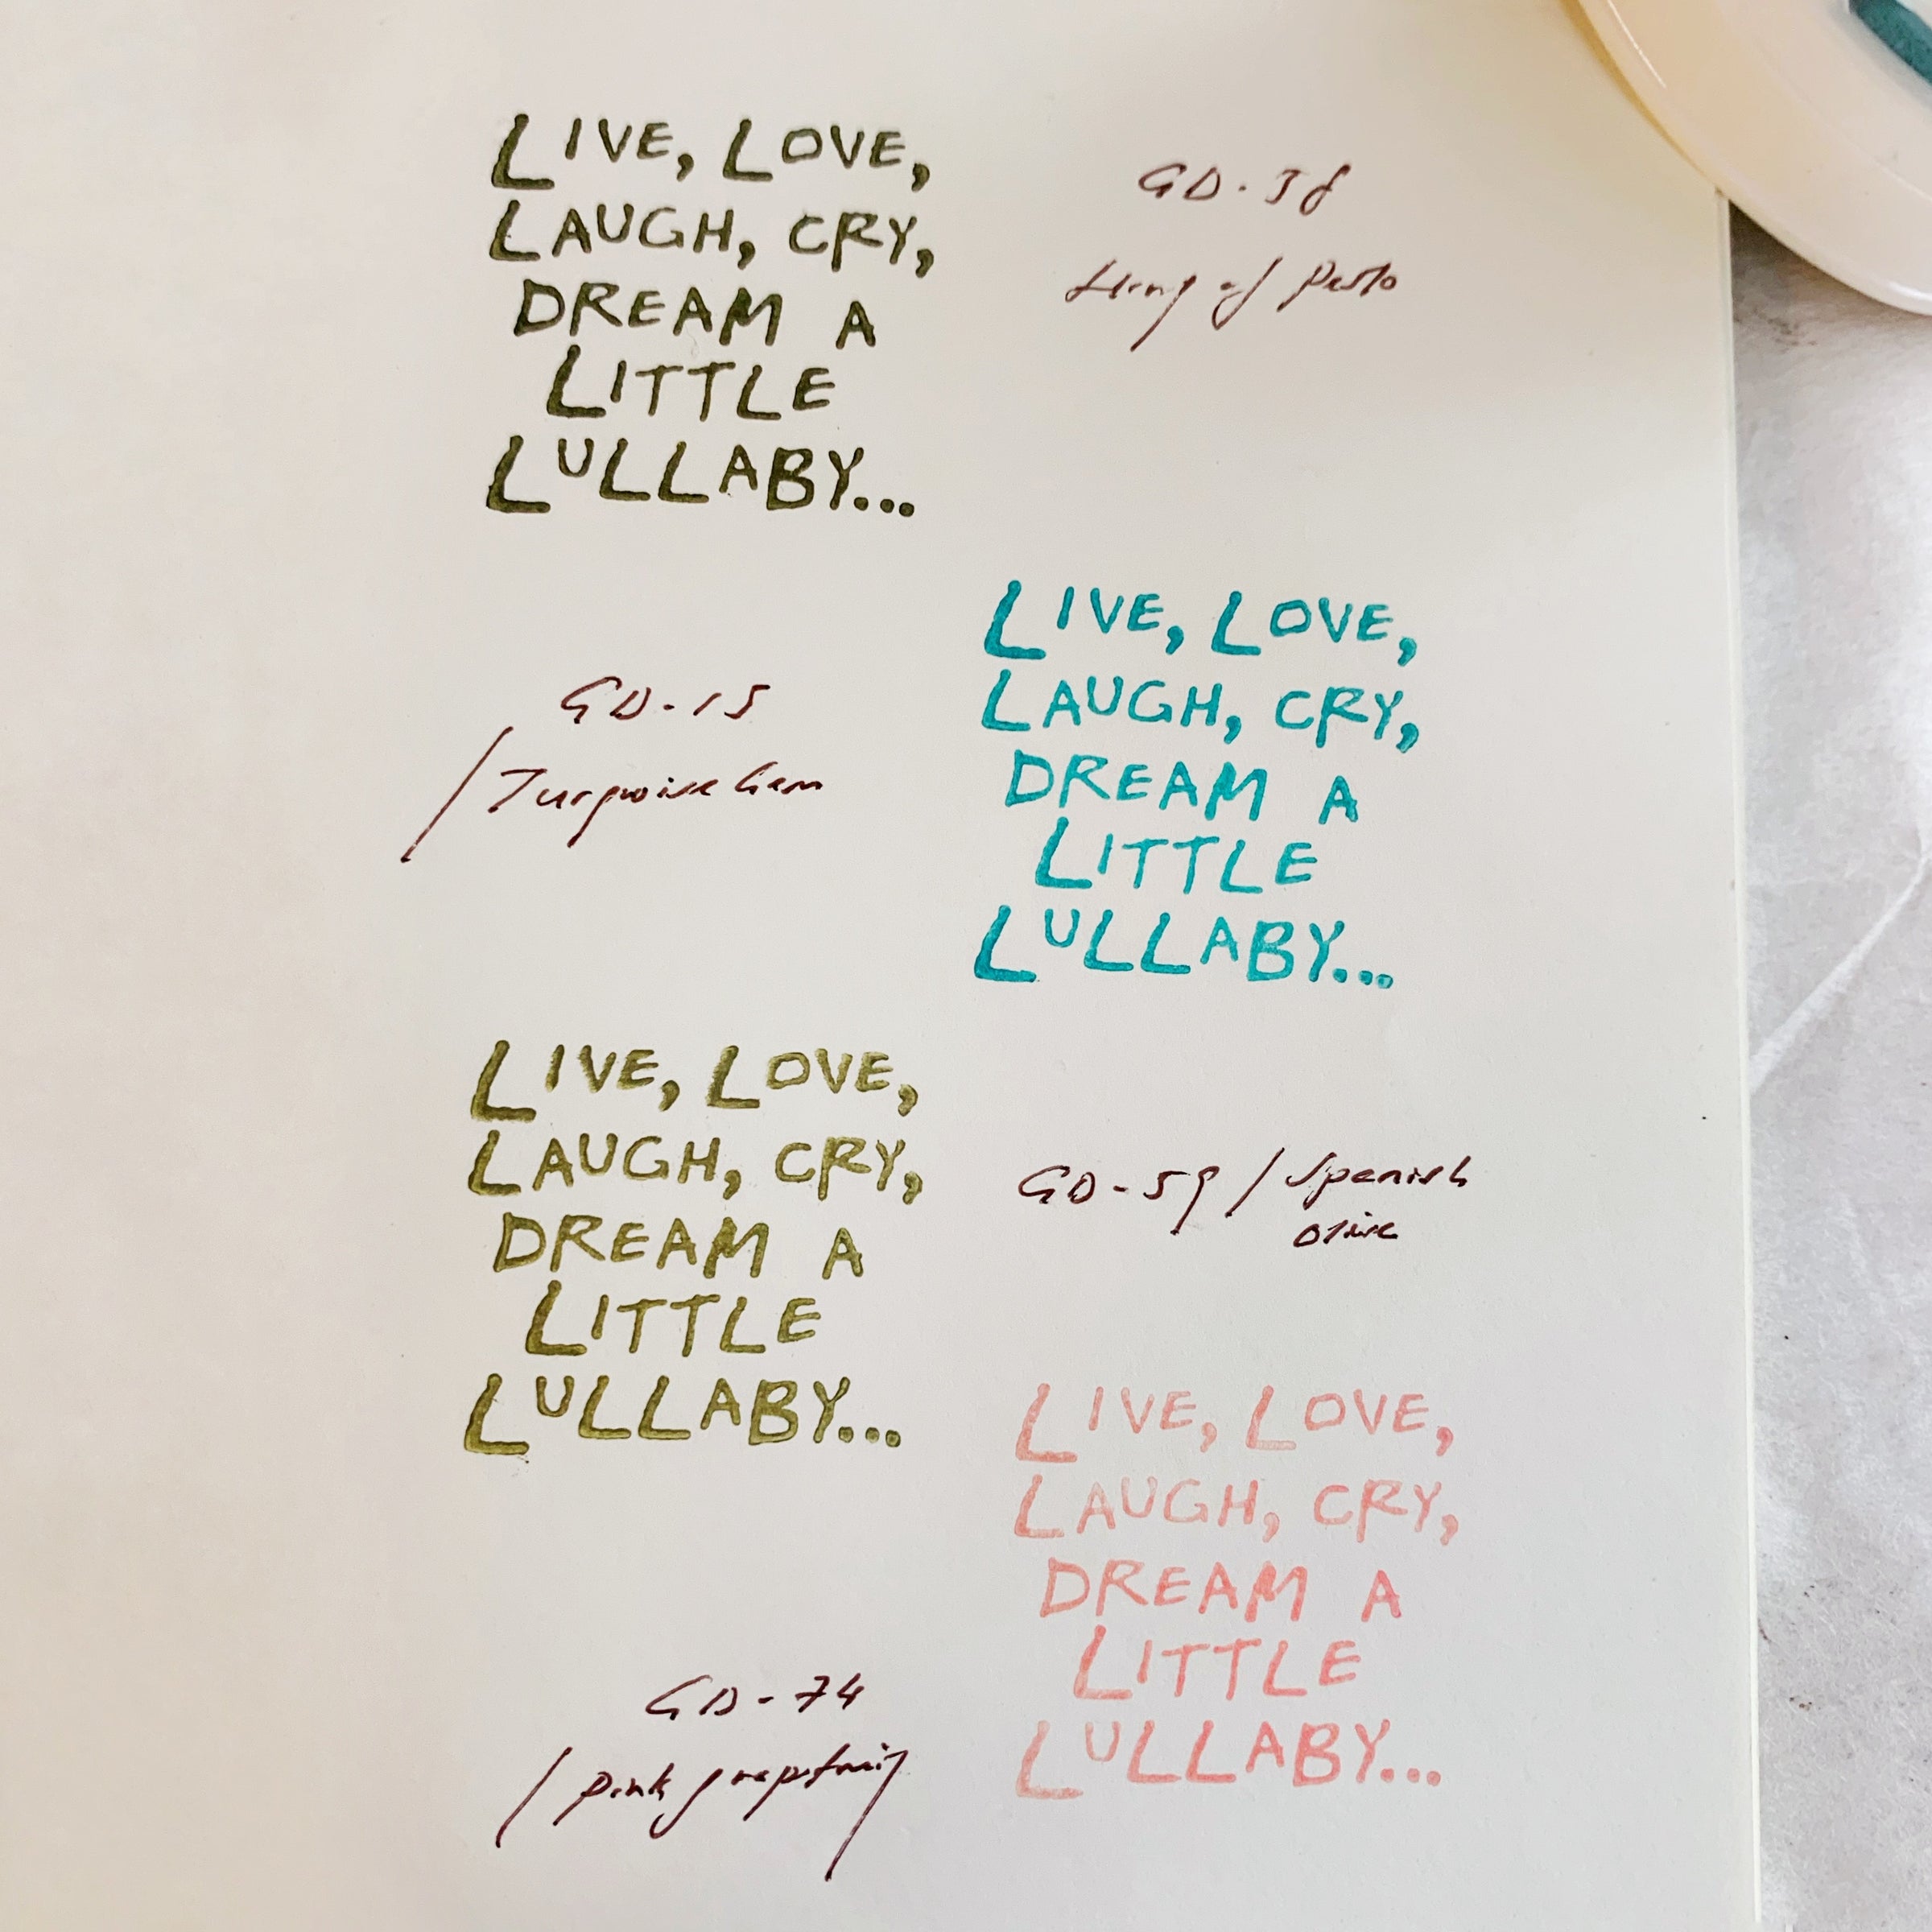 LIVE, LOVE,
LAUGH, CRY,
DREAM A
LITTLE
LULLABY...
GD-38
of Pesto
GD-15
/ Turquoise Gem
LIVE, LOVE,
LAUGH, CRY,
DREAM A
LITTLE
LULLABY...
LIVE, LOVE,
LAUGH, CRY,
DREAM A
LITTLE
LULLABY...
GD-59 / Spanish
olive
LIVE, LOVE,
LAUGH, CRY,
DREAM A
LITTLE
LULLABY...
GD-74
/ pink grapefruit